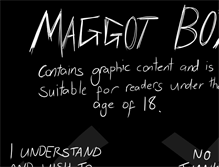 MAGGOT BO
Contains graphic content and is
suitable for readers under the
age of 18.
I UNDERSTAND
NO
AND WISH TO